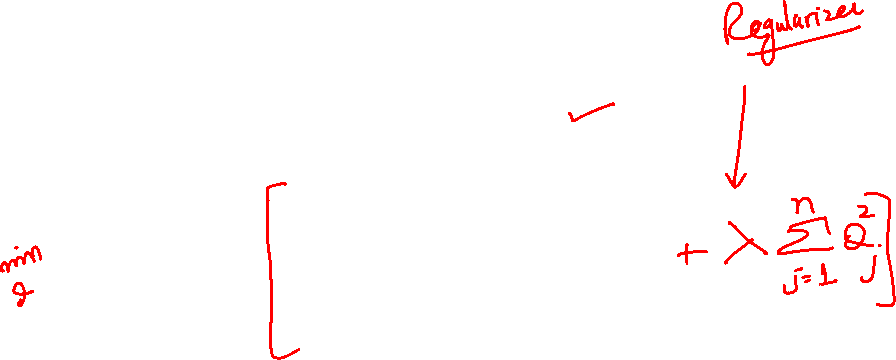 Regularizer
min [ + λ Σ_{j=1}^{n} θ_j^2 ]
θ